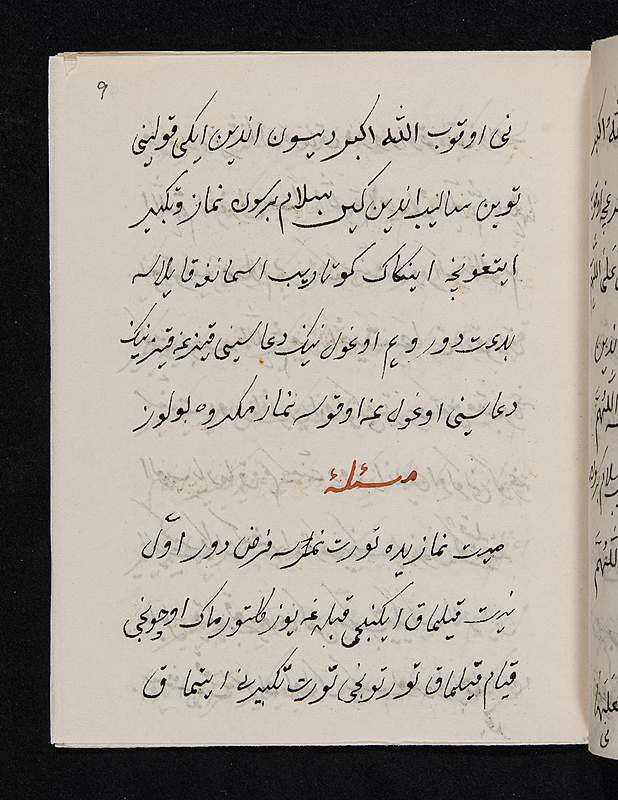 ۹
نی اوقوب الله اکبر دیسون اندین ایکی قولینی
توبن سالیب اندین کین سلام برسون نماز و تکبیر
ایتغونچه اینکاک کوتاریب اسمانغه قایلاسه
بدعت دور و یم اوغول نینک دعاسینی قیزغه قیزنینک
دعاسینی اوغول غه اوقوسه نماز مکروه بولور
مسئله
میت نمازیده تورت نمرسه فرض دور اوّل
نیت قیلماق ایکنجی قبله غه یوز کلتورماک اوچونجی
قیام قیلماق تورتونجی تورت تکبیرنی ایتماق